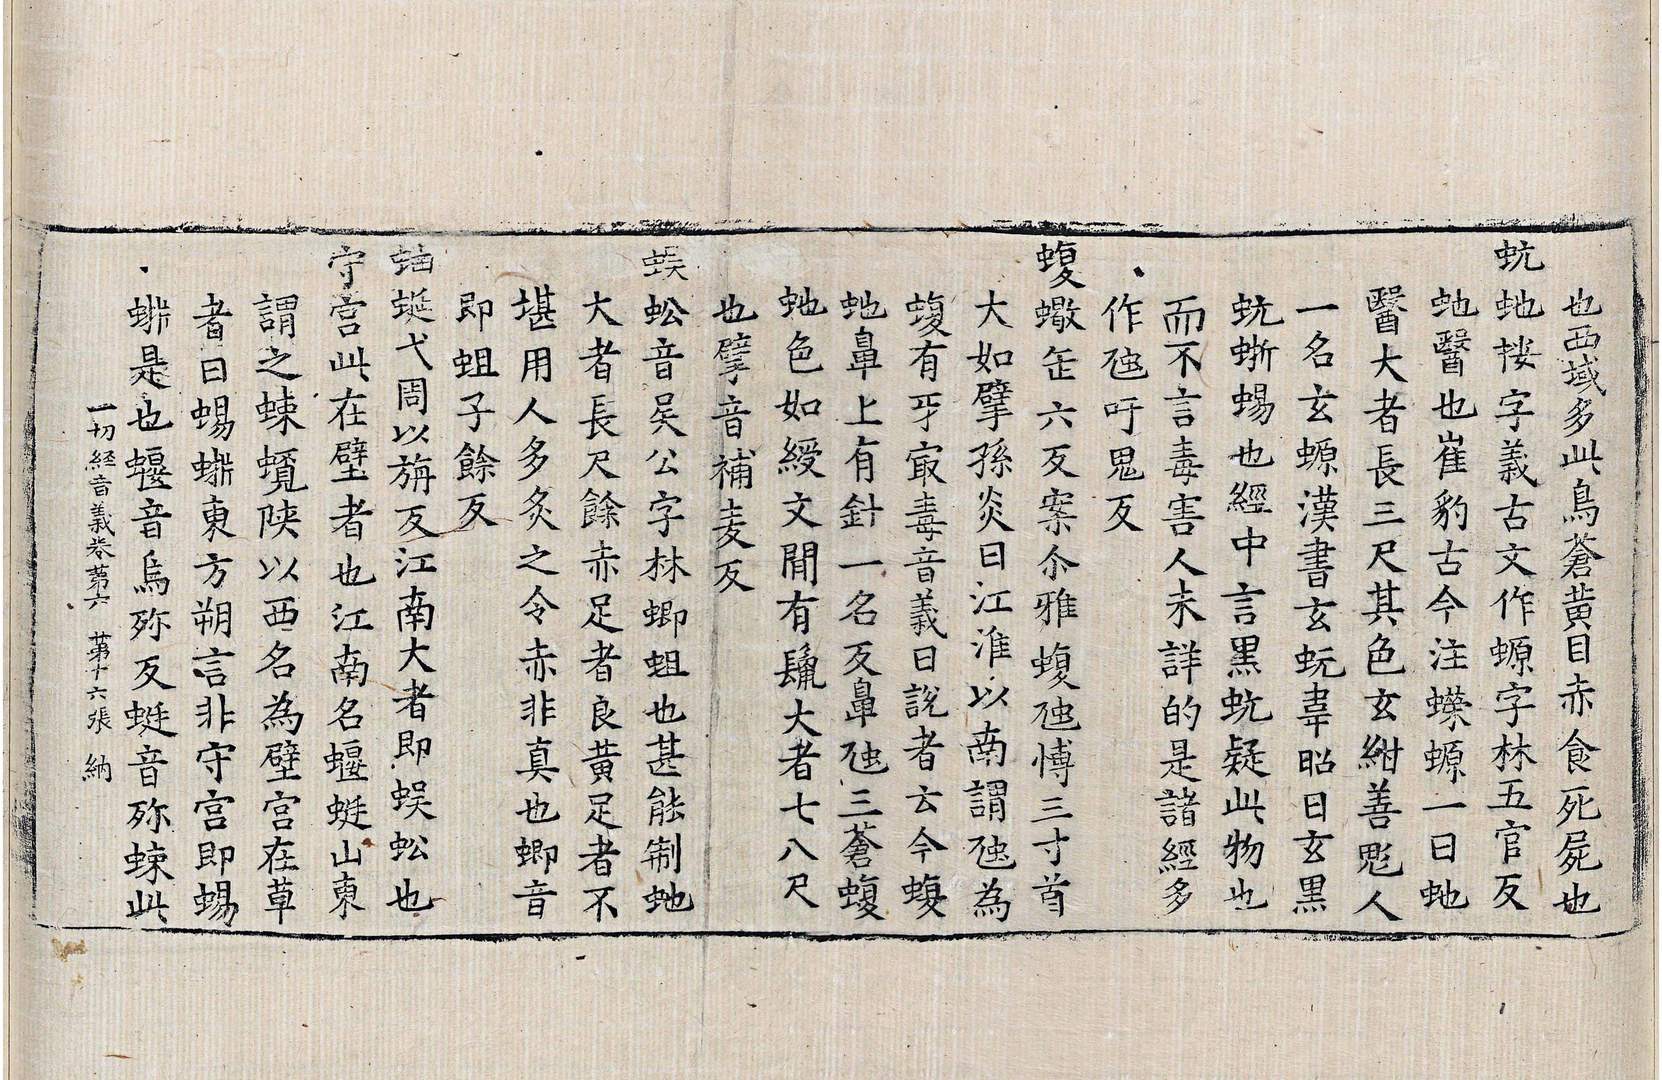 也西域多此鳥蒼黃目赤食死屍也
蚖虵按字義古文作螈字林五官反
虵醫也崔豹古今注蠑螈一曰虵
醫大者長三尺其色玄紺善魅人
一名玄螈漢書玄蚖韋昭曰玄黑
蚖蜥蜴也經中言黑蚖疑此物也
而不言毒害人未詳的是諸經多
作虺吁鬼反
蝮蠍缶六反案尒雅蝮虺博三寸首
大如擘孫炎曰江淮以南謂虺為
蝮有牙㝡毒音義曰說者云今蝮
虵鼻上有針一名反鼻虺三蒼蝮
虵色如綬文閒有鬣大者七八尺
也擘音補麦反
蜈蚣音吴公字林蝍蛆也甚能制虵
大者長尺餘赤足者良黃足者不
堪用人多炙之令赤非真也蝍音
即蛆子餘反
蚰蜒弋周以旃反江南大者即蜈蚣也
守宮此在壁者也江南名蝘蜓山東
謂之蝀蠦陝以西名為壁宮在草
者曰蜴蜥東方朔言非守宮即蜴
蜥是也蝘音烏殄反蜓音殄蝀此
一切經音義卷第六 第十六張 納